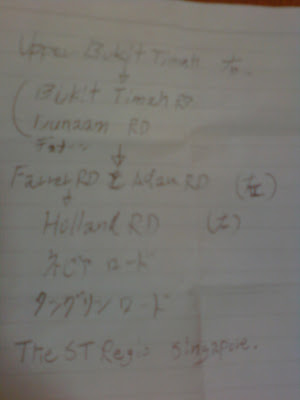 Upper Bukit Timah 右.
↓
(Bukit Timah RD
Dunearn RD
↓
Farrer RD & Adam RD (右)
↓
Holland RD (左)
ネピア ロード
タングリン ロード
The ST Regis Singapore.